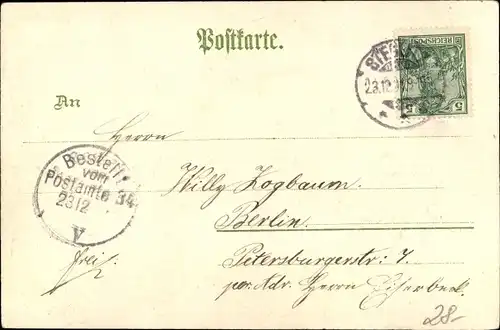 Postkarte.
REICHSPOST
5 5
23.12.
An
Herrn
Bestellt
vom
Postamte 34
23 12
A
Willy Zogbaum
Berlin.
frei.
Petersburgerstr: 7.
per Adr. Herrn Eiserbeck.
28-